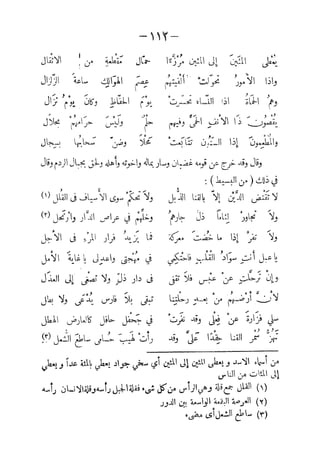 — ١١٢ —
يُعْطِي المئينَ إلى المئينَ مُرَزَّءًا حمّال مُقْطعةٍ من الأثقال
واذا الأمورُ تحوّلت أَلفيتَهُمْ عِصَمَ الهوَالِكِ ساعةَ الزلزال
وهمُ الحُمَاةُ اذا النّساء تحسّرت يوْمَ الحفَاظِ وكانَ يوْمُ نزَال
يُقصُونَ ذا الأنفِ الحَمِيِّ وفيهم حلمٌ وليْسَ حرَامُهُمْ بحَلَال
والمطعِمونَ إذا السنُونَ تتابَعت محْلاً وضنّ سحابُها بسِجال
وقال وقد خرج عن قومه غضبان وسار بماله واخوته وأهله ولحق بجبال الردم وقال
في ذلك (من البسيط) :
لا تَقتَضِ الدَّيْنَ إلاّ بالقنا الذُّبل ولا تُحكِّمْ سوى الأسياف في القُلل (١)
ولا تجاورْ لئامًا ذلّ جارهمُ وخلّهِمْ في عراص الدَّار وارْتحل (٢)
ولا تفرّ إذا ما خُضتَ معركةً فما يَزيدُ فرار المرْءِ في الأجل
يا عبل أنتِ سوَادُ القلْبِ فاحتَكِمي في مُهْجتي واعدِلي يا غايةَ الأمل
وإنْ ترحَّلتِ عنْ عبسٍ فلا تقفي في دار ذلٍّ ولا تصغي إلى العذَل
لأنَّ أرْضهمُ منْ بعدِ رحلَتِنا تبقى بلاَ فارسٍ يُدْعَى ولا بطل
سلي فزارةَ عنْ فِعْلي وقد نفَرت في جحْفلٍ حافلٍ كالعارض الهطل
تهُزُّ سُمْرَ القنا حقْدًا عَليَّ وقد رأتْ لهيبَ حُسامي ساطعَ الشعل (٣)
من أسماء الاسد و يعطي المئين إلى المئين أي سخي جواد يعطي المئة عداً و يعطي
إلى المئات من الناس
(١) القلل جمع قلة وهي الرأس من كل شيء فقلة الجبل رأسه وقلة الانسان رأسه
(٢) العرصة البقعة الواسعة بين الدور
(٣) ساطع الشعل أي مضيء